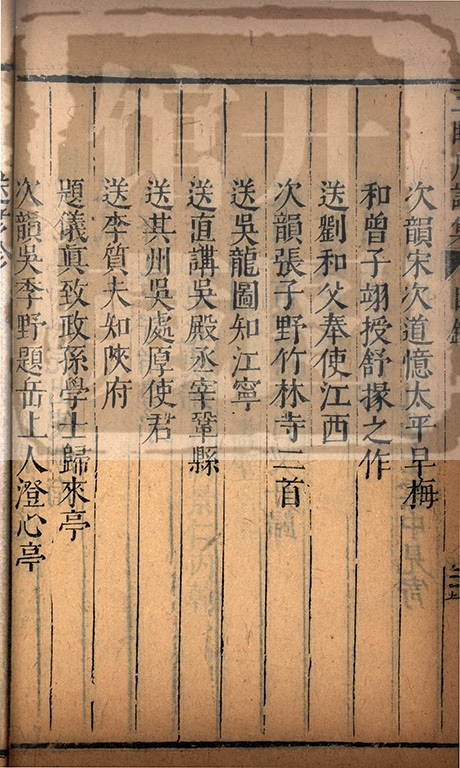 次韻宋次道憶太平早梅
和曾子翊授舒掾之作
送劉和父奉使江西
次韻張子野竹林寺二首
送吳龍圖知江寧
送直講吳殿丞宰鞏縣
送真州吳處厚使君
送李質夫知陝府
題儀真致政孫學士歸來亭
次韻吳季野題岳上人澄心亭